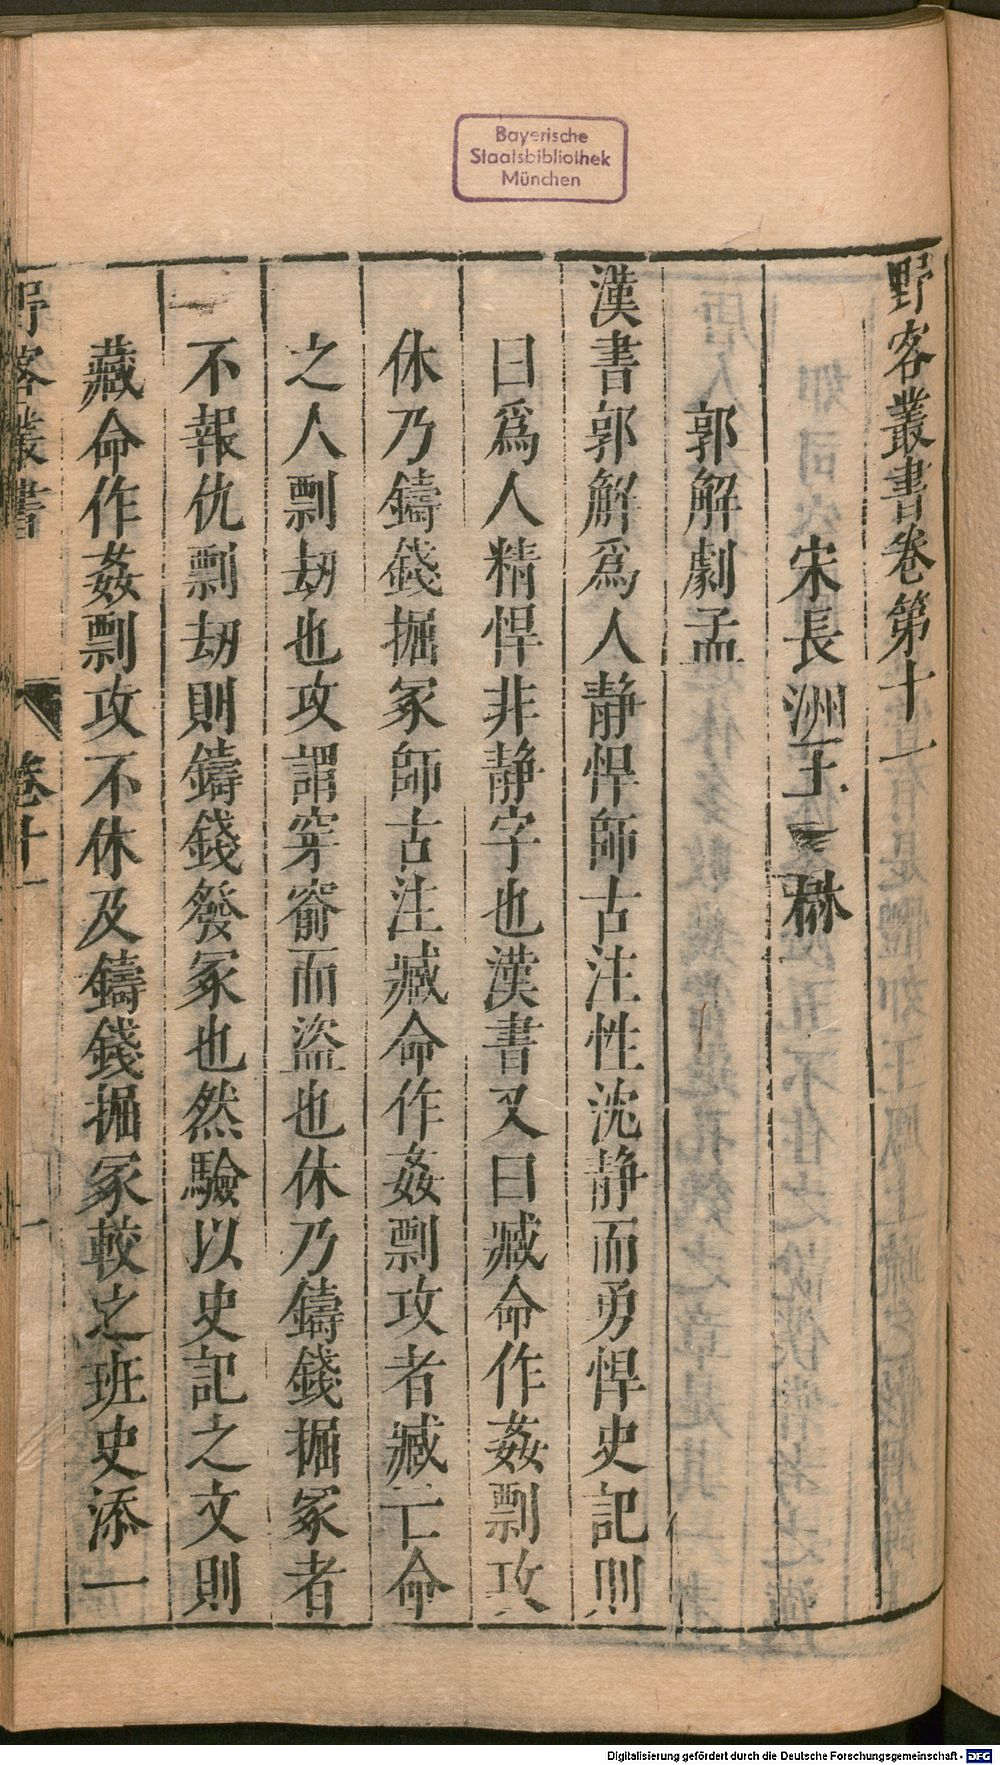 Bayerische
Staatsbibliothek
München
野客叢書卷第十一
宋長洲王 楙
郭解劇孟
漢書郭解爲人靜悍師古注性沈靜而勇悍史記則
曰爲人精悍非靜字也漢書又曰臧命作姦剽攻
休乃鑄錢掘冢師古注臧命作姦剽攻者臧亡命
之人剽刼也攻謂穿窬而盜也休乃鑄錢掘冢者
不報仇剽刼則鑄錢發冢也然驗以史記之文則
藏命作姦剽攻不休及鑄錢掘冢較之班史添一
野客叢書 卷十一 一
Digitalisierung gefördert durch die Deutsche Forschungsgemeinschaft - DFG